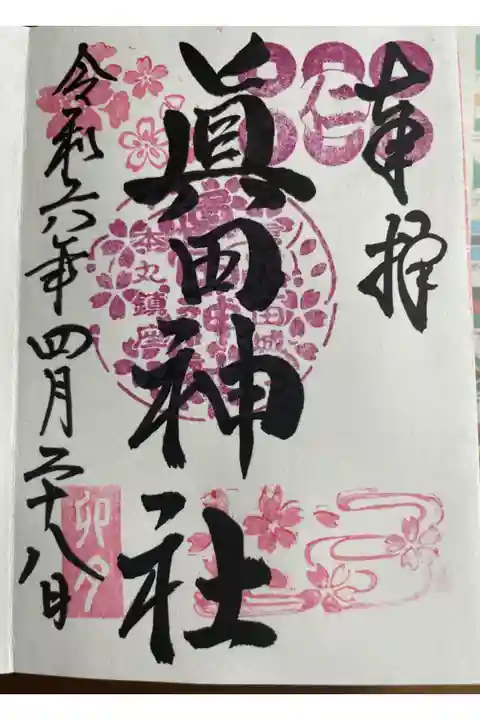 奉拝
仁
眞田神社
本丸鎮座
田城
卯月
令和六年四月二十八日